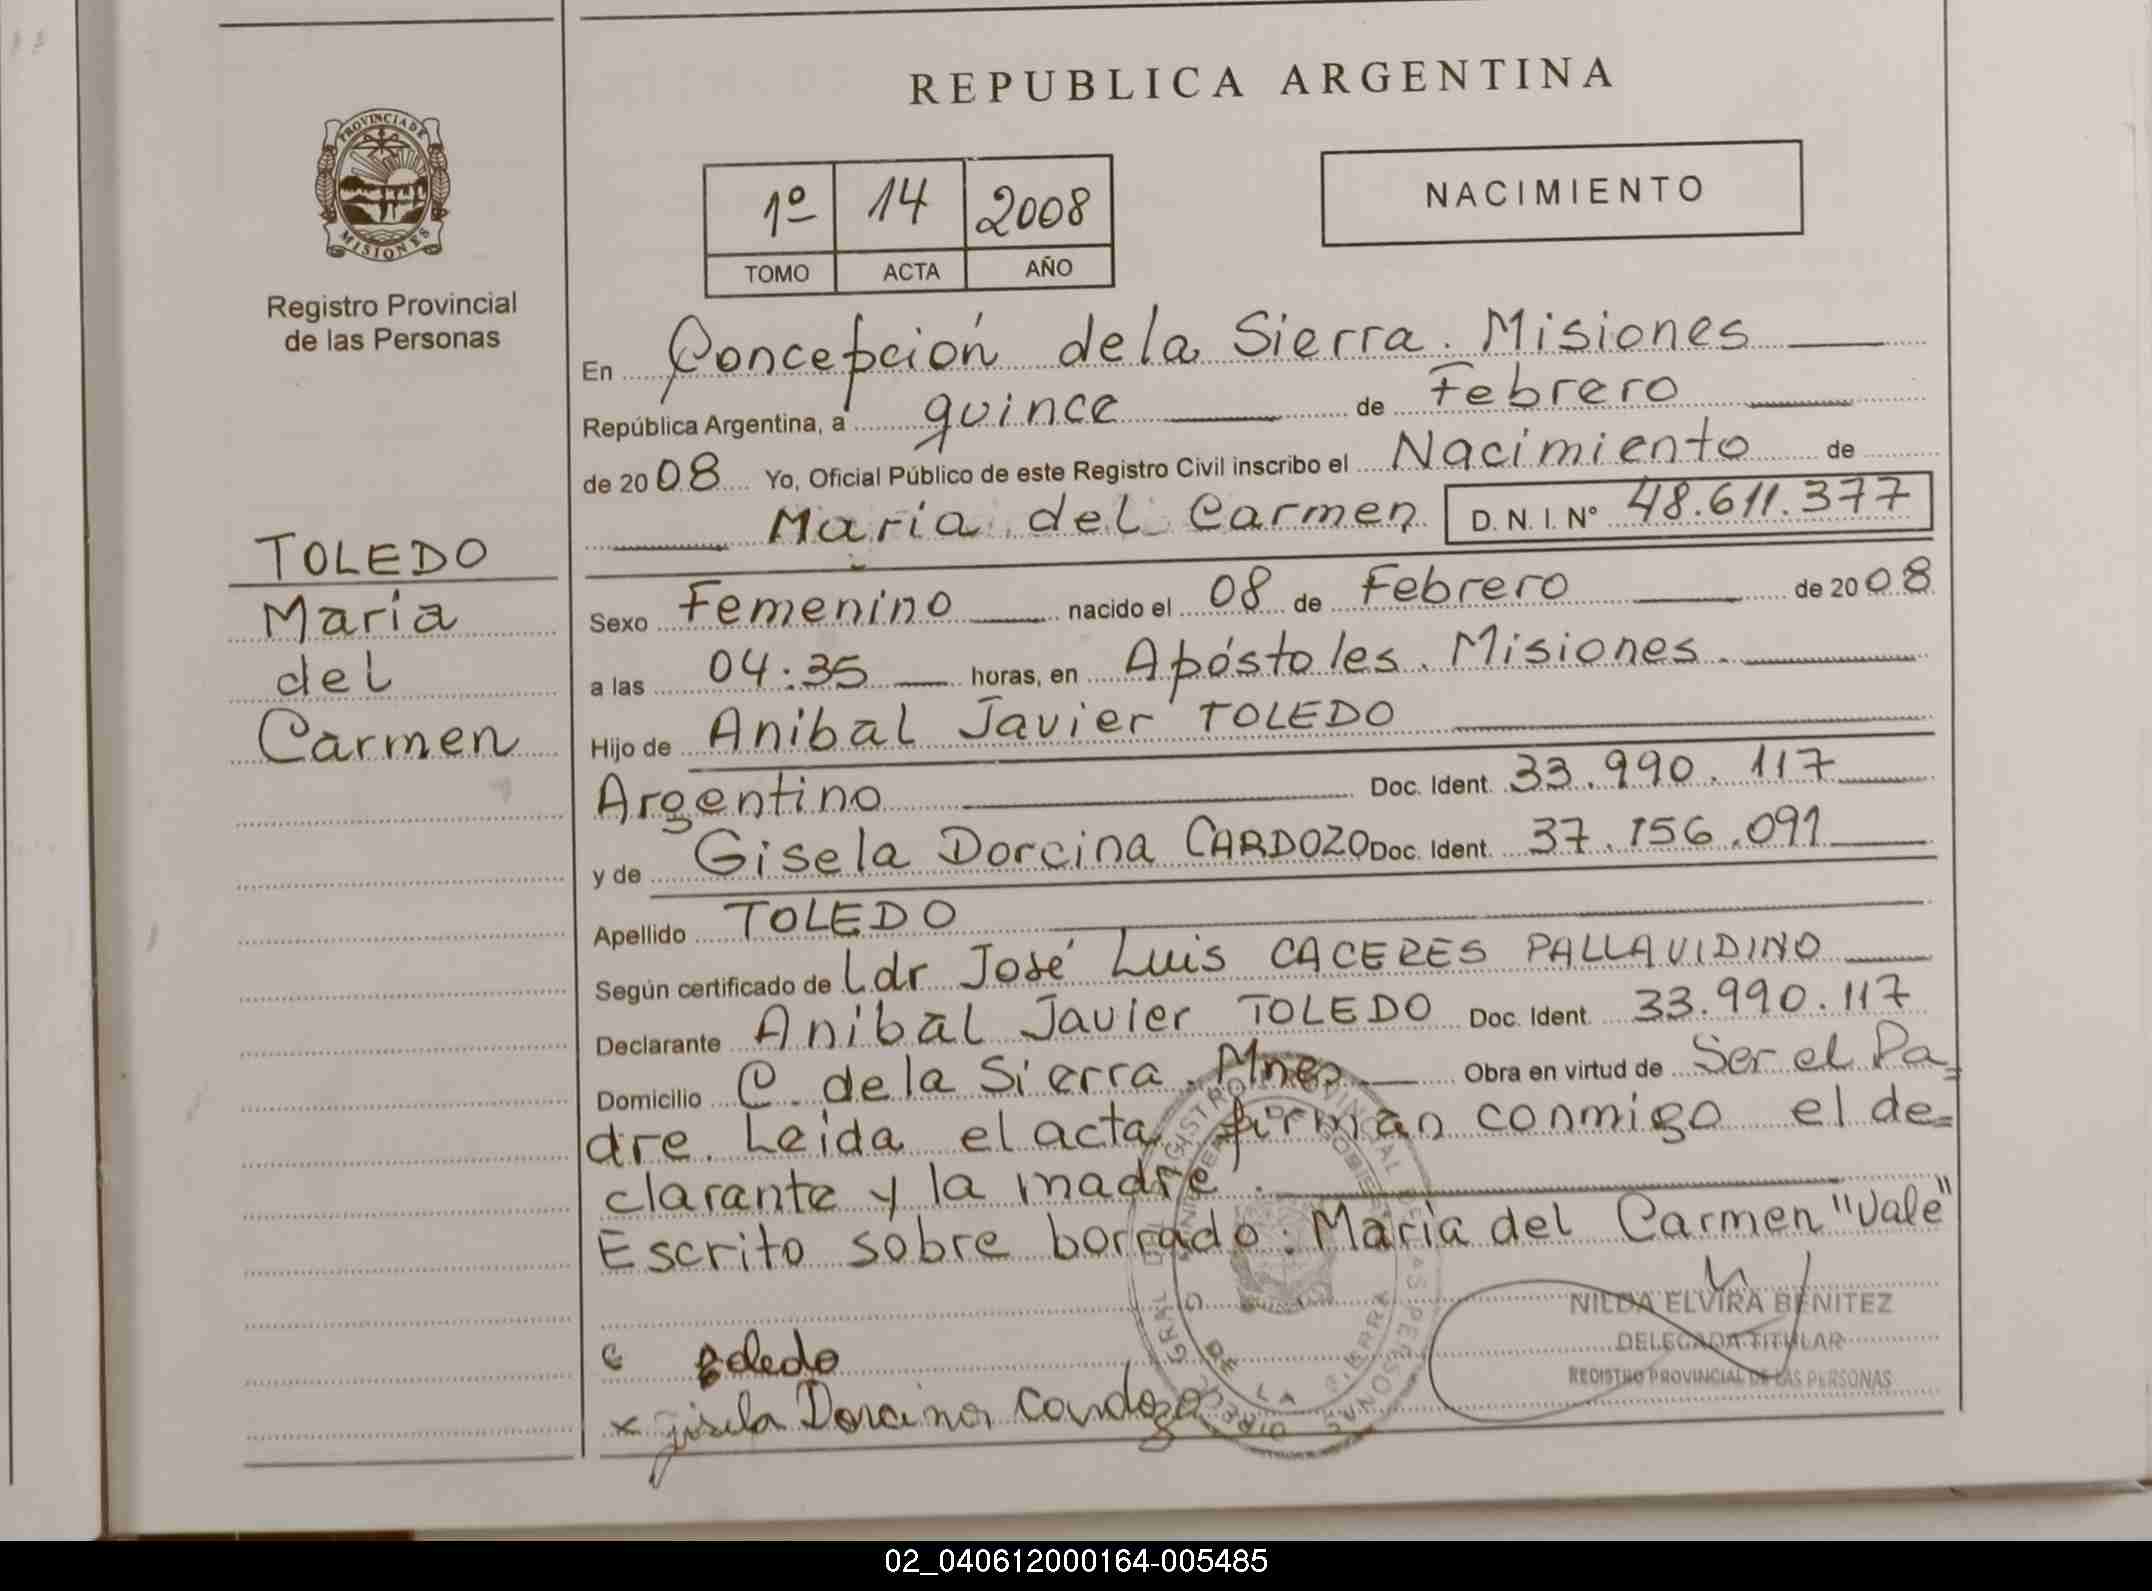 REPUBLICA ARGENTINA
PROVINCIA DE
MISIONES
Registro Provincial
de las Personas
1º 14 2008
TOMO ACTA AÑO
NACIMIENTO
TOLEDO
Maria
del
Carmen
En Concepción de la Sierra. Misiones
República Argentina, a quince de Febrero
de 2008 Yo, Oficial Público de este Registro Civil inscribo el Nacimiento de
Maria del Carmen D. N. I. Nº 48.611.377
Sexo Femenino nacido el 08 de Febrero de 2008
a las 04:35 horas, en Apóstoles. Misiones.
Hijo de Anibal Javier TOLEDO
Argentino Doc. Ident. 33.990.117
y de Gisela Dorcina CARDOZO Doc. Ident. 37.156.091
Apellido TOLEDO
Según certificado de Ldr José Luis CACERES PALLAVIDINO
Declarante Anibal Javier TOLEDO Doc. Ident. 33.990.117
Domicilio C. de la Sierra. Mnes Obra en virtud de Ser el Pa=
dre. Leida el acta firman conmigo el de=
clarante y la madre.
Escrito sobre borrado: Maria del Carmen "Vale"
NILDA ELVIRA BENITEZ
DELEGADA TITULAR
REGISTRO PROVINCIAL DE LAS PERSONAS
toledo
x Gisela Dorcina Cardozo
02_040612000164-005485